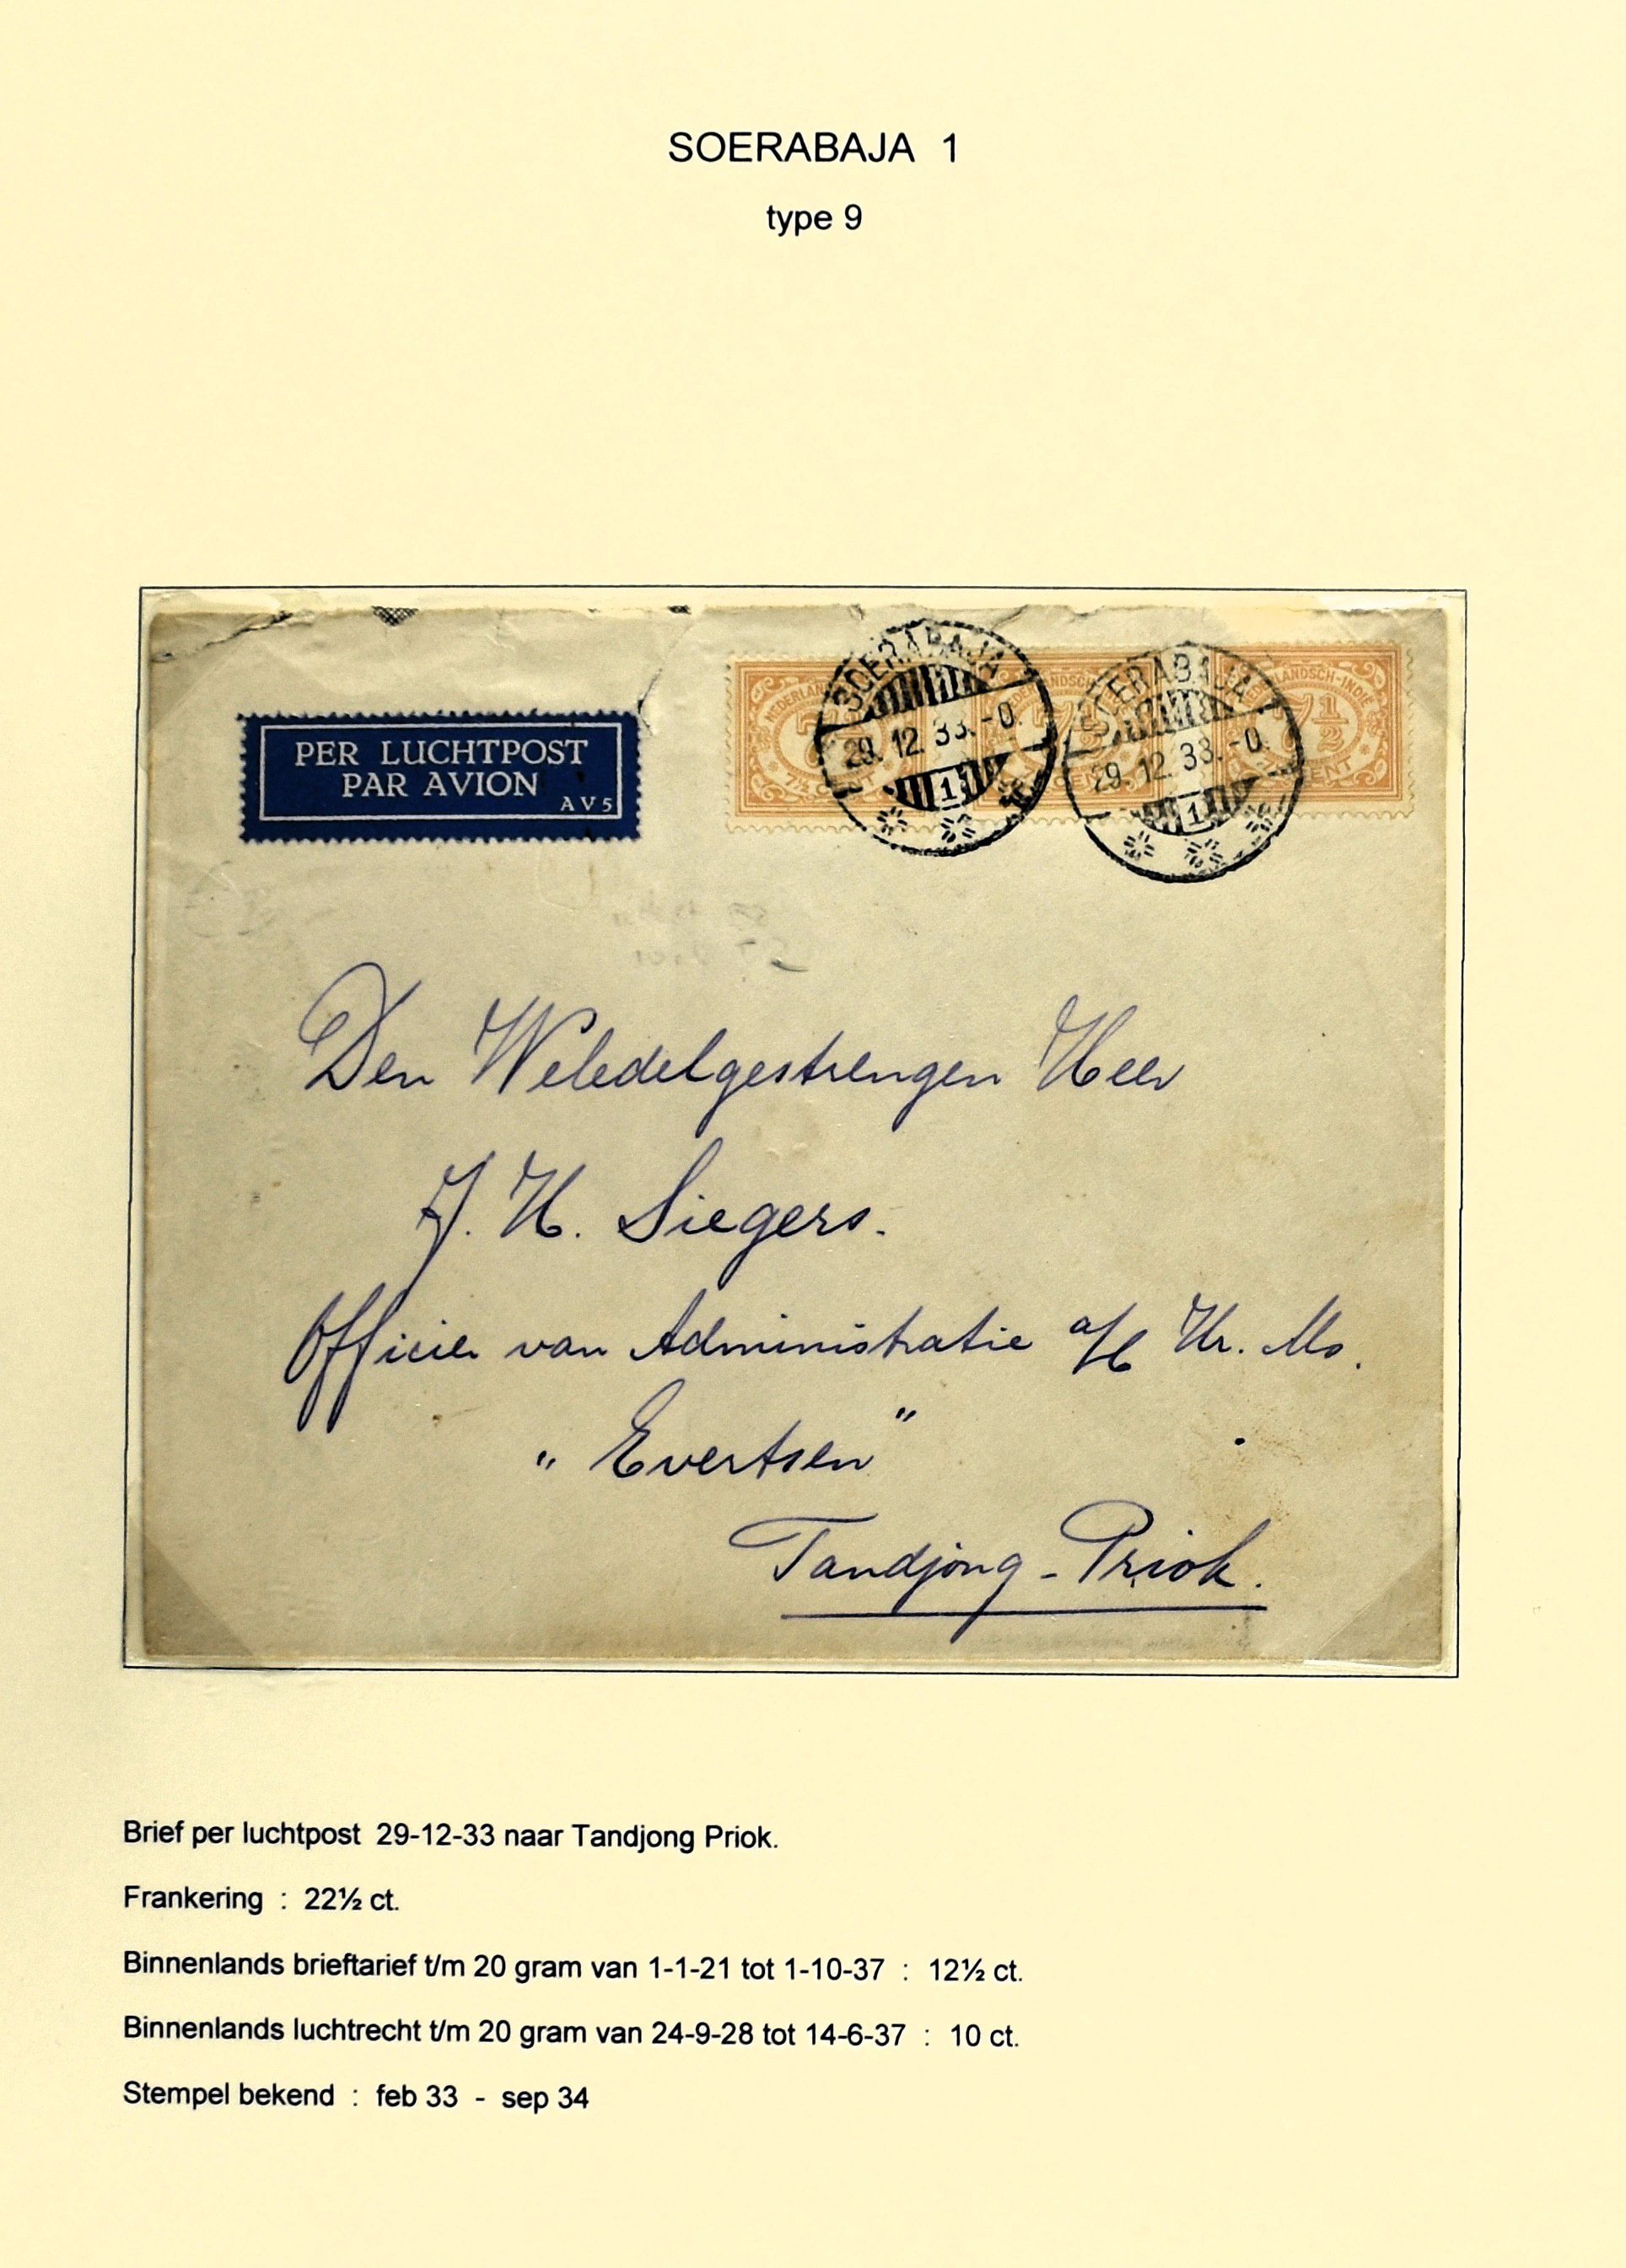 SOERABAJA 1
type 9
PER LUCHTPOST
PAR AVION
AV5
SOERABAJA
29.12.33.-0
1
SOERABAJA
29.12.33.-0
1
NEDERLANDSCH-INDIE
7½
CENT
Den Weledelgestrengen Heer
J. H. Siegers.
Officier van Administratie a/b Hr. Ms.
„ Evertsen "
Tandjong - Priok.
Brief per luchtpost 29-12-33 naar Tandjong Priok.
Frankering : 22½ ct.
Binnenlands brieftarief t/m 20 gram van 1-1-21 tot 1-10-37 : 12½ ct.
Binnenlands luchtrecht t/m 20 gram van 24-9-28 tot 14-6-37 : 10 ct.
Stempel bekend : feb 33 - sep 34